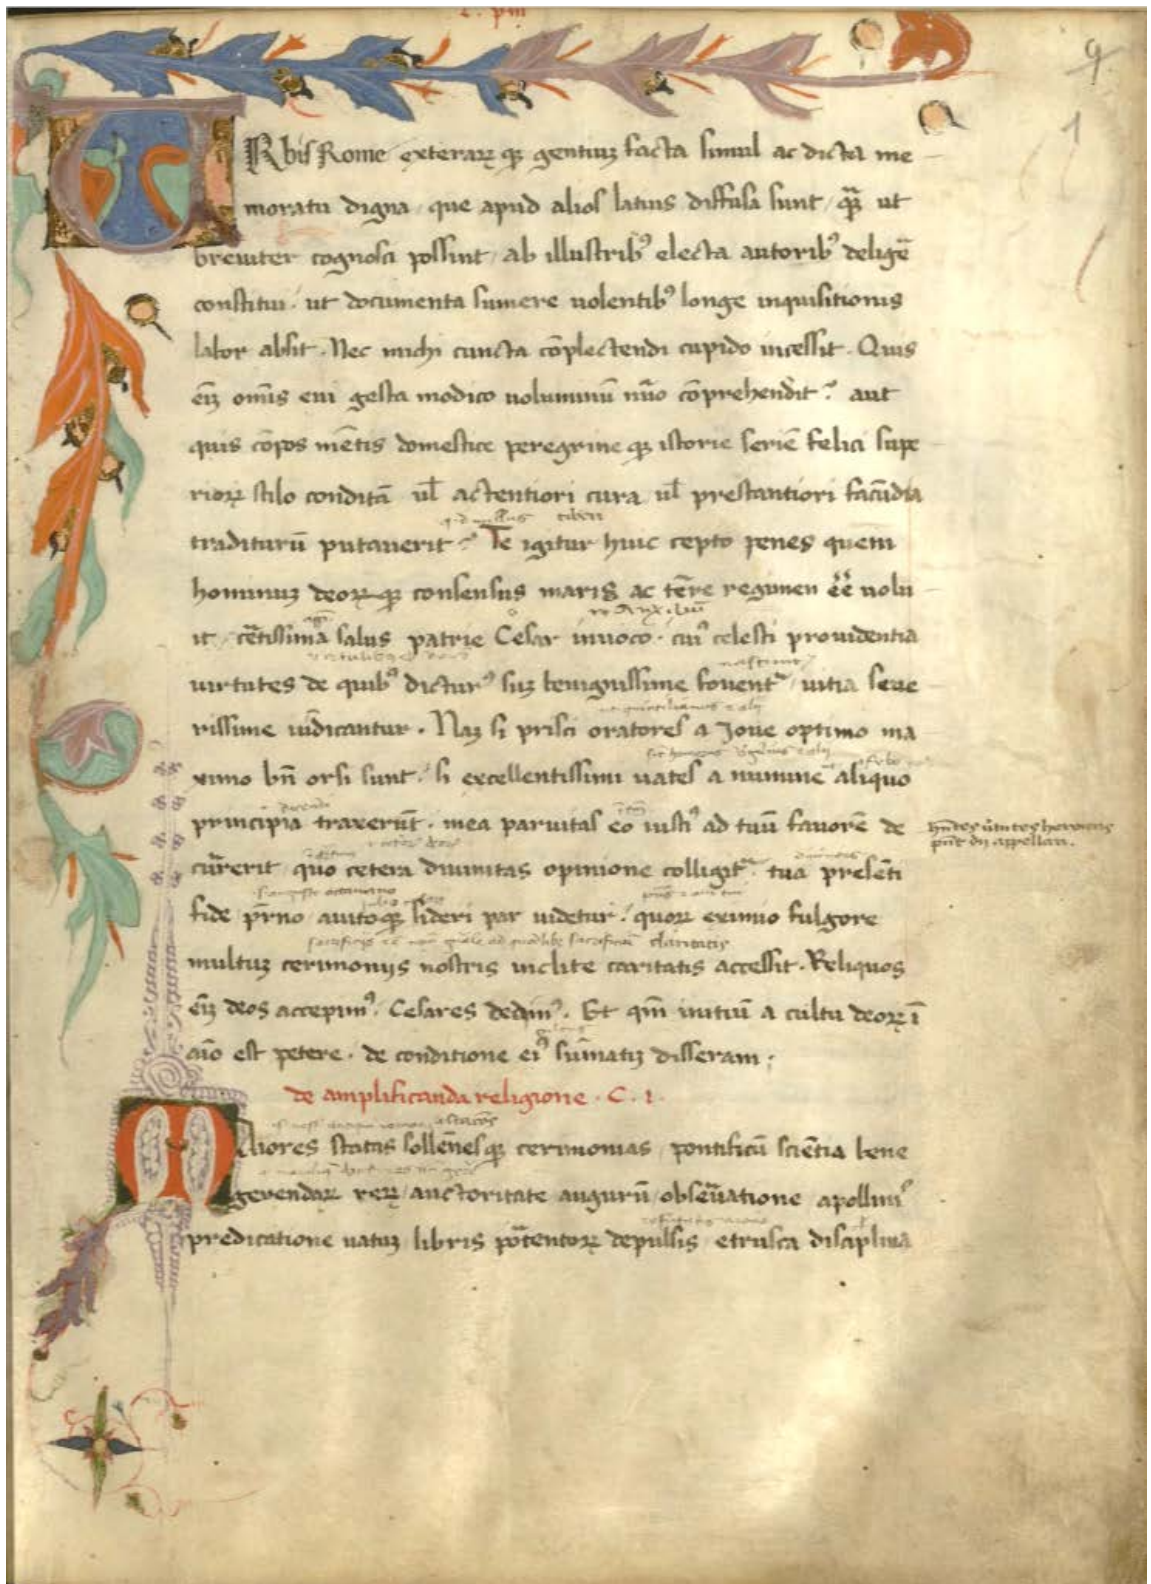 9
1
URbis Rome exterarꝝ qꝫ gentiuꝫ facta simul ac dicta me
moratu digna que apud alios latius diffusa sunt qᷓꝫ ut
breuiter cognosci possint ab illustribꝰ electa autoribꝰ deligē
constitui · ut documenta sumere uolentibꝰ longe inquisitionis
labor absit · Nec michi cuncta cōplectendi cupido incessit · Quis
eīꝫ omīs eui gesta modico uoluminū nūo cōprehendit ? aut
quis cōpos mētis domestice peregrine qꝫ istorie seriē felici supe
riorꝝ stilo conditā ul̄ actentiori cura ul̄ prestantiori facūdia
traditurū putauerit ? Te igitur huic cepto penes quem
hominuꝫ deorꝝ qꝫ consensus maris ac terre regimen eē uolu
it certissima salus patrie Cesar inuoco · cuiꝰ celesti prouidentia
uirtutes de quibꝰ dicturꝰ suꝫ benignissime fouentᷣ uitia seue
rissime uīdicantur · Naꝫ si prisci oratores a Joue optimo ma
ximo bn̄ orsi sunt · si excellentissimi uates a numine aliquo
principia traxerūt · mea paruitas eo iustiꝰ ad tuū fauorē de
currerit quo cetera diuinitas opinione colligitᷣ tua presēti
fide pr̄no auitoqꝫ sideri par uidetur · quorꝝ eximio fulgore
claritatis
multuꝫ cerimonijs nostris inclite caritatis accessit · Reliquos
eīꝫ deos accepimꝰ · Cesares dedimꝰ · Et qm̄ initiū a cultu deorꝝ ī
aīo est petere · de conditione eiꝰ sūmatiꝫ disseram ;
de amplificanda religione · C · 1 ·
MAiores statas sollēnesqꝫ cerimonias pontificū sciētia bene
gerendarꝝ rerꝝ auctoritate augurū obseruatione apolliniꝰ
predicatione uatuꝫ libris portentorꝝ depulsis etrusca disciplina